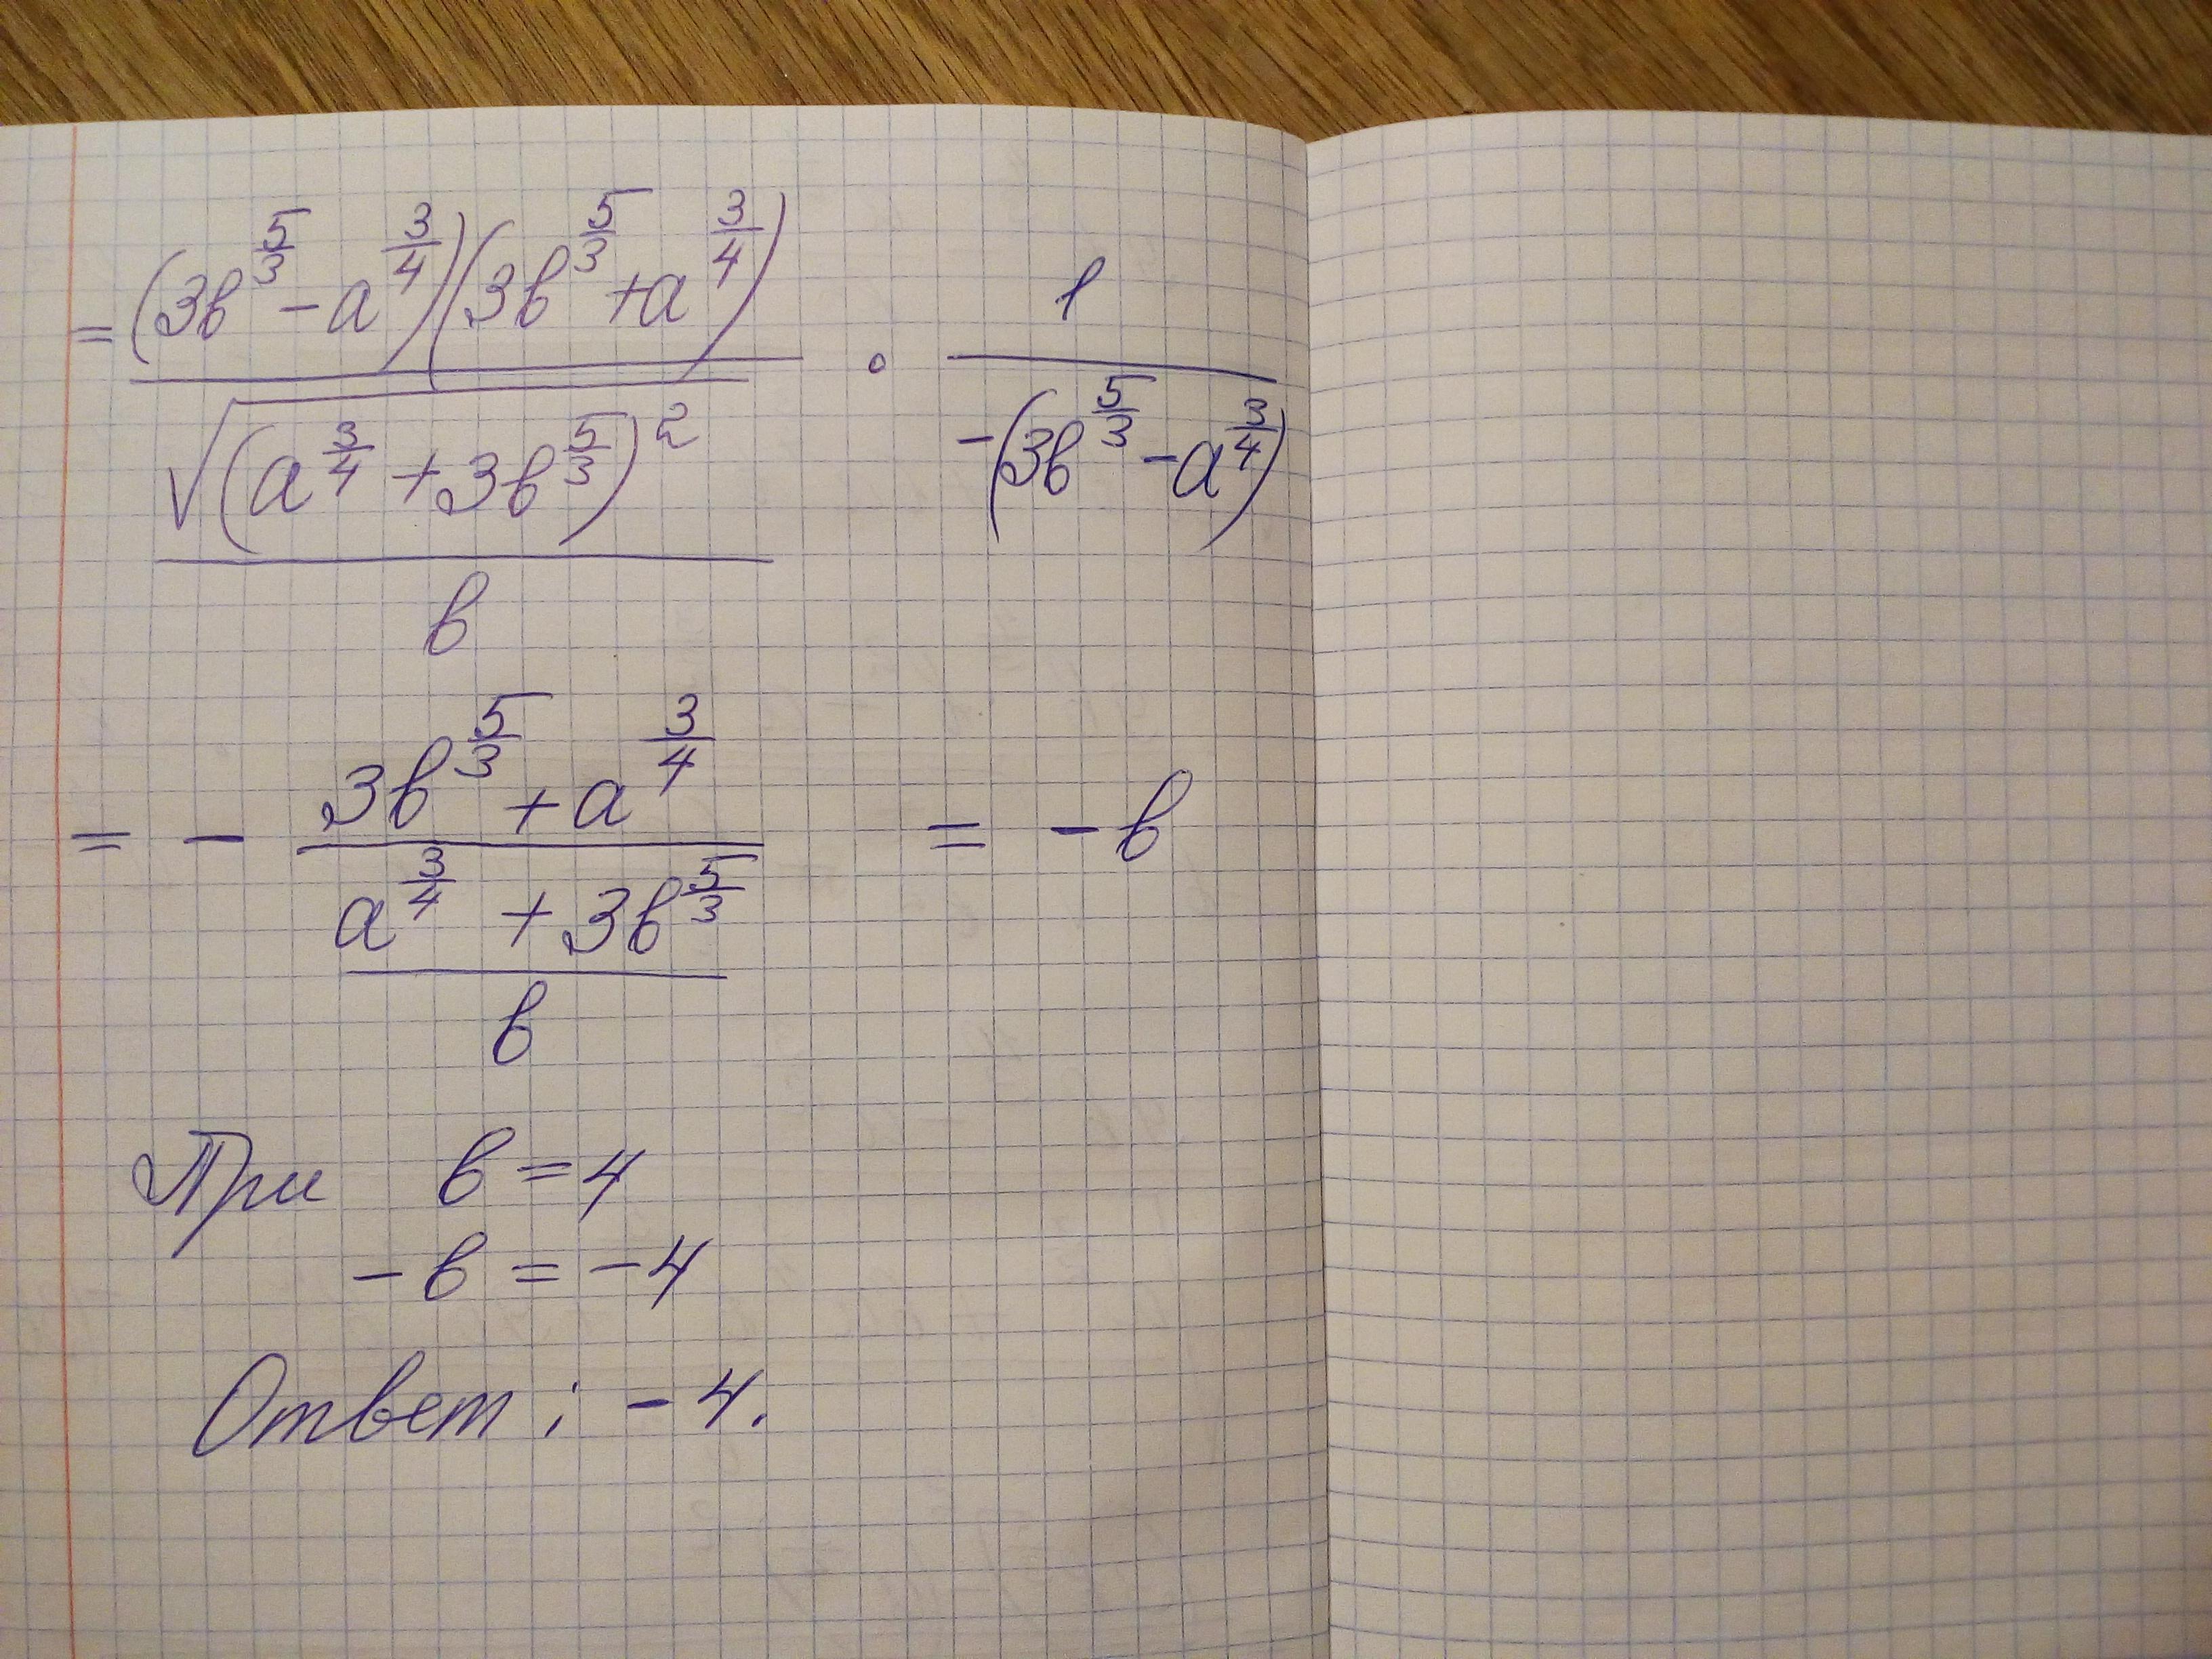 = \frac{(3b^{\frac{5}{3}} - a^{\frac{3}{4}})(3b^{\frac{5}{3}} + a^{\frac{3}{4}})}{\frac{\sqrt{(a^{\frac{3}{4}} + 3b^{\frac{5}{3}})^2}}{b}} \cdot \frac{1}{-(3b^{\frac{5}{3}} - a^{\frac{3}{4}})}
= - \frac{3b^{\frac{5}{3}} + a^{\frac{3}{4}}}{\frac{a^{\frac{3}{4}} + 3b^{\frac{5}{3}}}{b}} = -b
При b = 4
-b = -4
Ответ: -4.